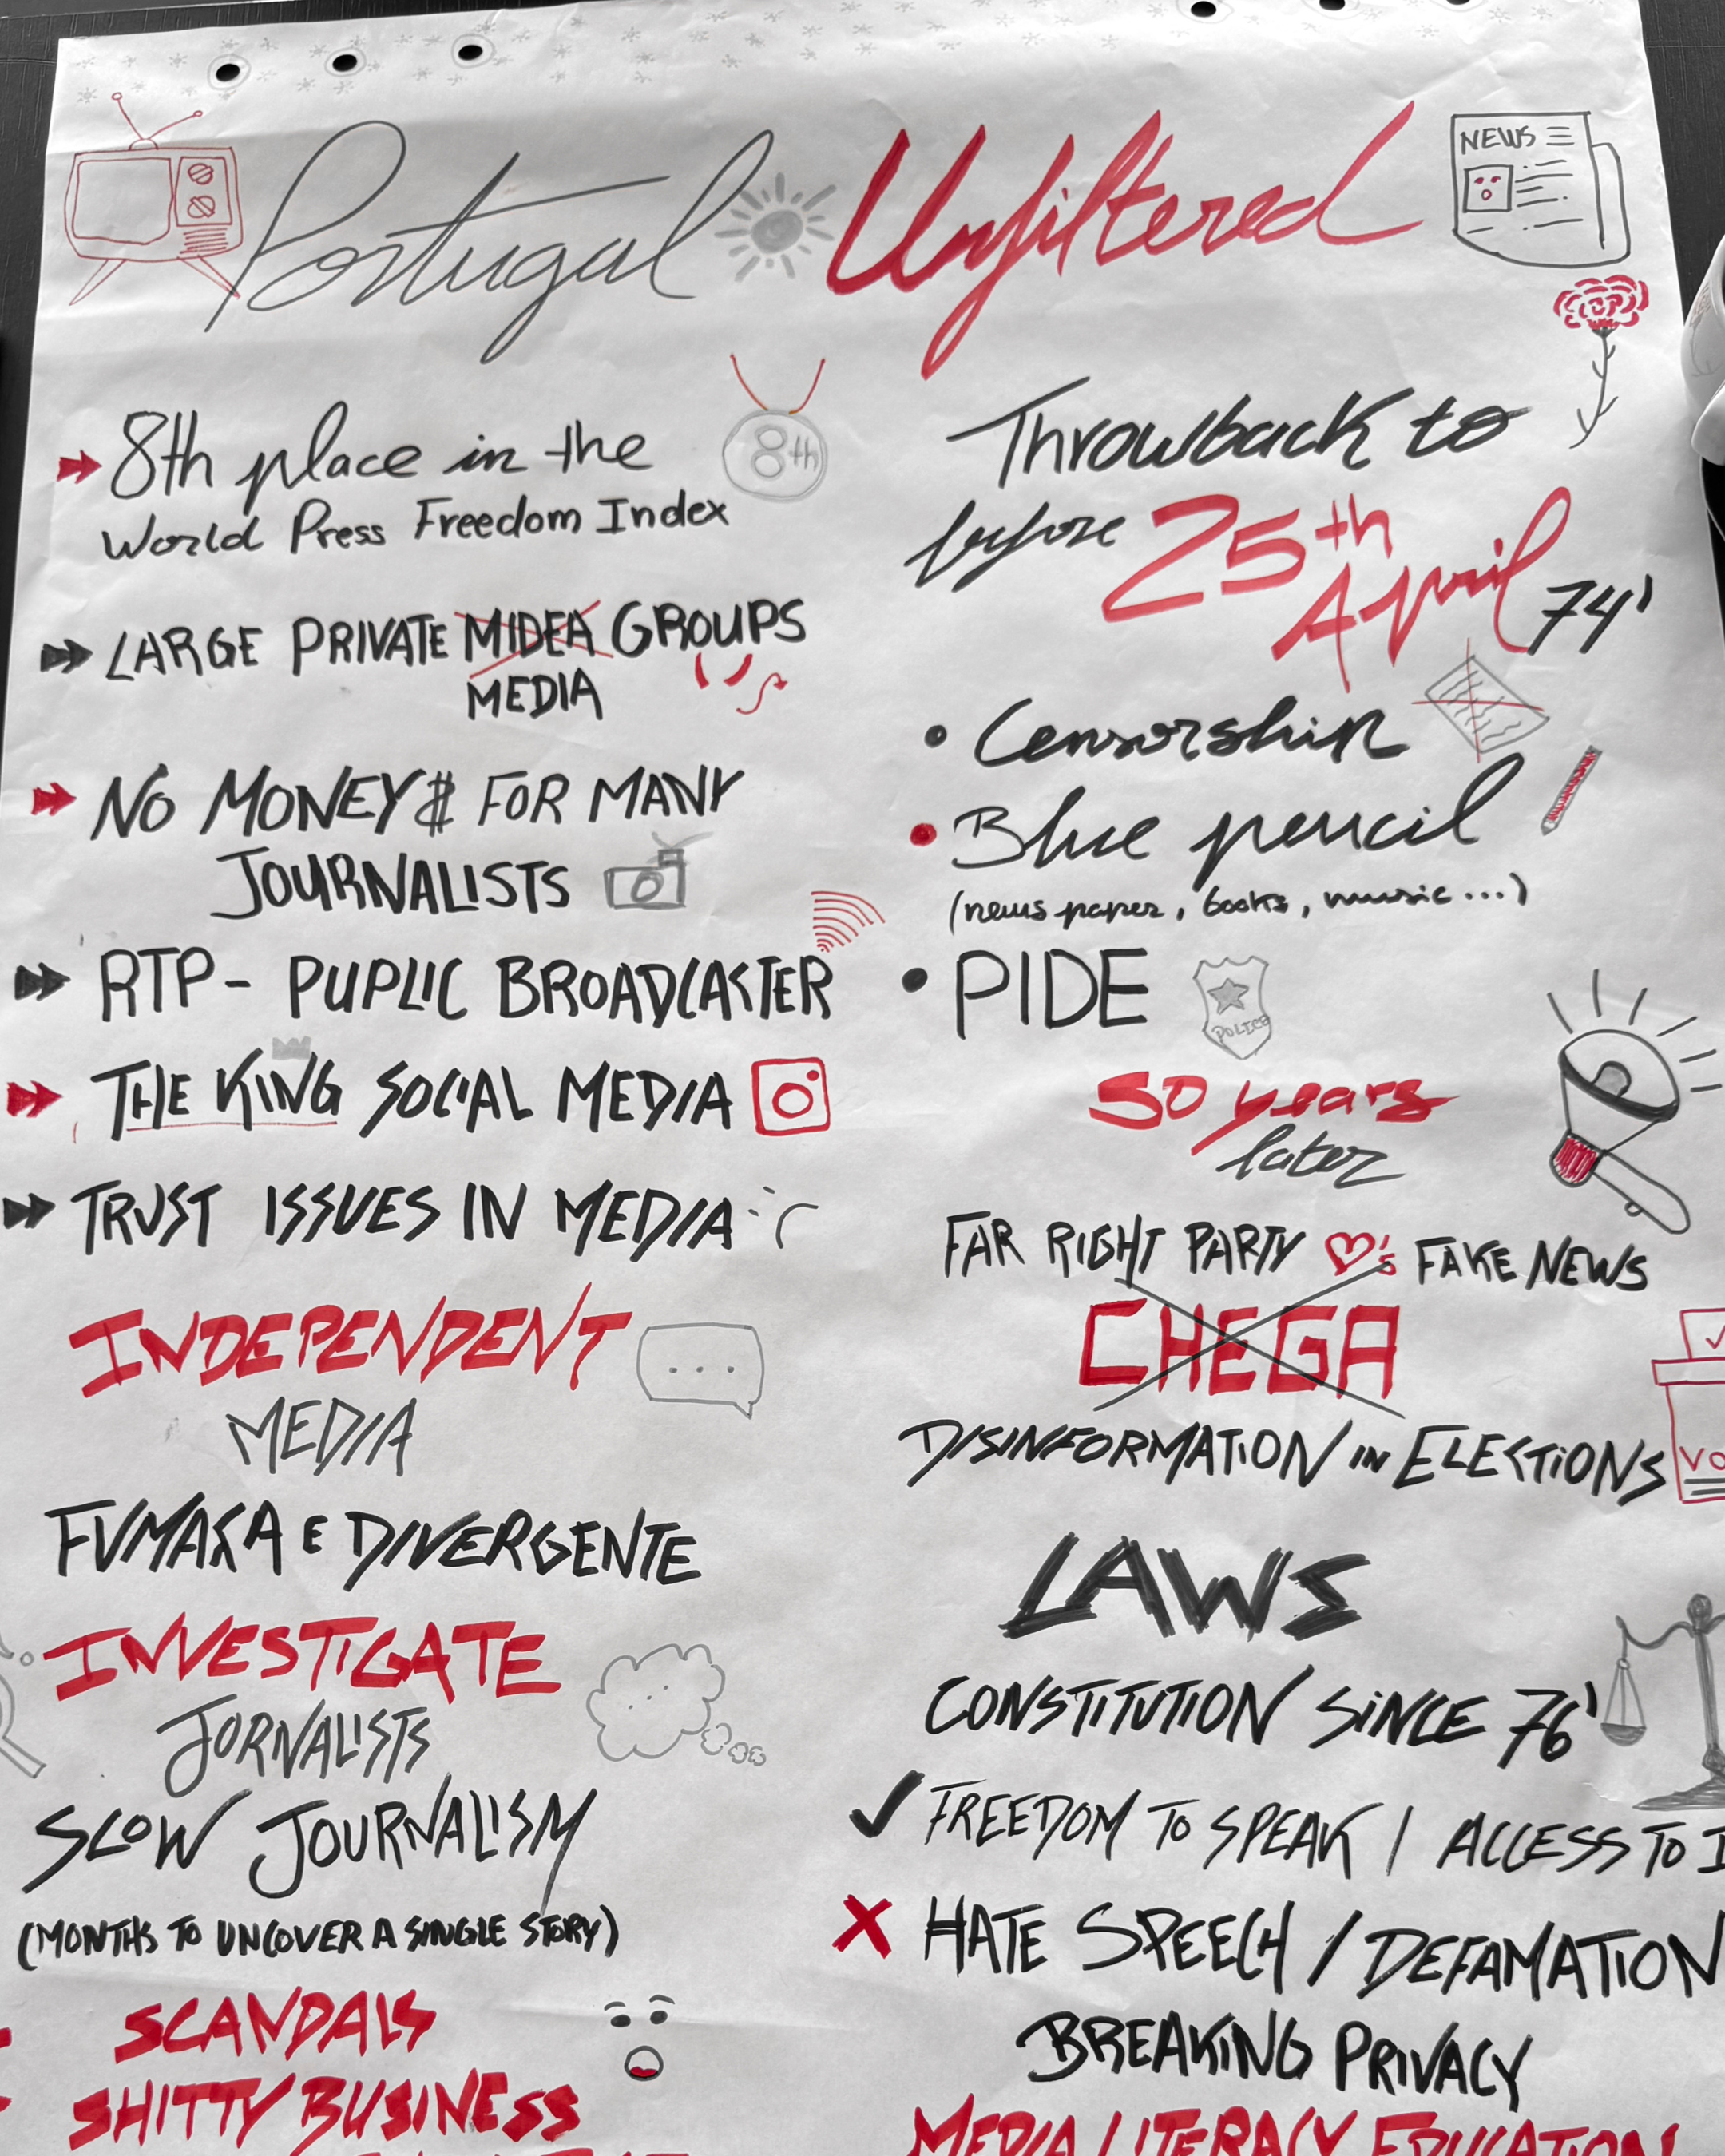 Portugal Unfiltered
NEWS
8th place in the
8th
World Press Freedom Index
LARGE PRIVATE MIDEA GROUPS
MEDIA
NO MONEY$ FOR MANY
JOURNALISTS
RTP - PUPLIC BROADCASTER
THE KING SOCIAL MEDIA
TRUST ISSUES IN MEDIA :(
INDEPENDENT
MEDIA
FUMAÇA E DIVERGENTE
INVESTIGATE
JORNALISTS
SLOW JOURNALISM
(MONTHS TO UNCOVER A SINGLE STORY)
SCANDALS
SHITTY BUSINESS
Throwback to
before 25th
April 74'
• Censorship
• Blue pencil
(news paper, books, music...)
• PIDE
POLICE
50 years
later
FAR RIGHT PARTY FAKE NEWS
CHEGA
DISINFORMATION IN ELECTIONS
VO
LAWS
CONSTITUTION SINCE 76'
✓ FREEDOM TO SPEAK / ACCESS TO I
X HATE SPEECH / DEFAMATION
BREAKING PRIVACY
MEDIA LITERACY EDUCATION